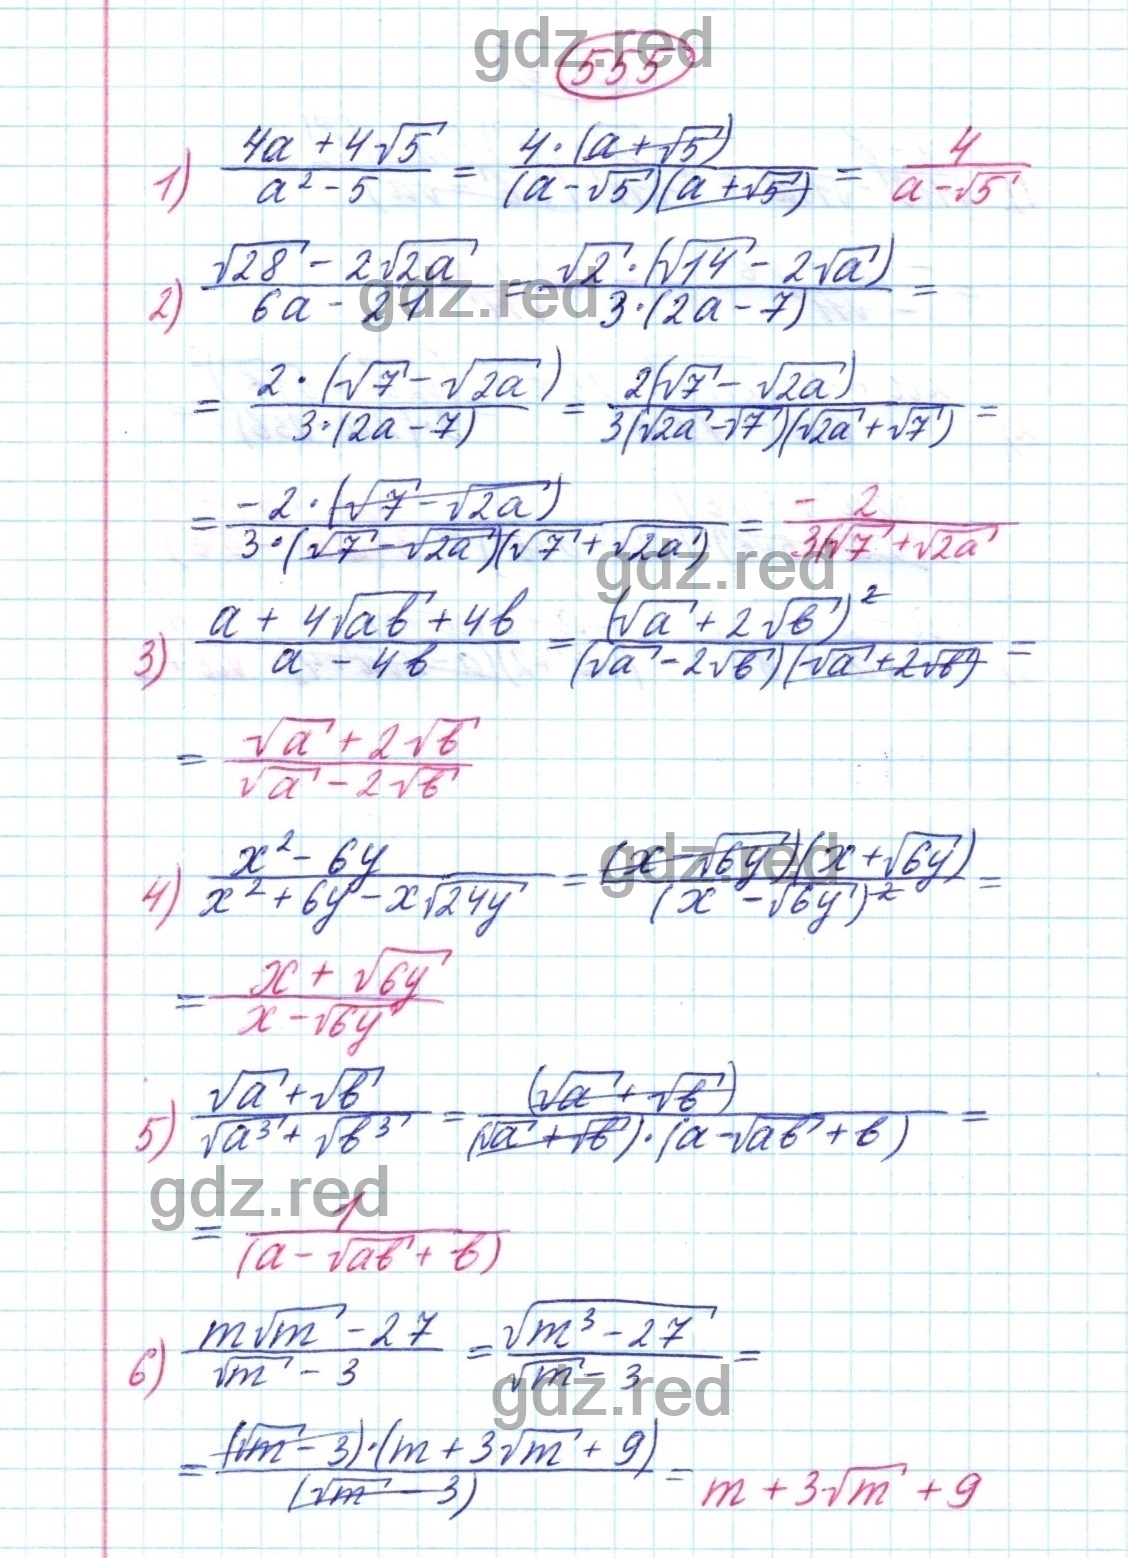 gdz.red
555
1) (4a + 4√5)/(a² - 5) = (4·(a + √5))/((a - √5)(a + √5)) = 4/(a - √5)
2) (√28 - 2√2a)/(6a - 21) = (√2·(√14 - 2√a))/(3·(2a - 7)) =
gdz.red
= (2·(√7 - √2a))/(3·(2a - 7)) = (2(√7 - √2a))/(3(√2a - √7)(√2a + √7)) =
= (-2·(√7 - √2a))/(3·(√7 - √2a)(√7 + √2a)) = - 2/(3(√7 + √2a))
gdz.red
3) (a + 4√ab + 4b)/(a - 4b) = (√a + 2√b)²/((√a - 2√b)(√a + 2√b)) =
= (√a + 2√b)/(√a - 2√b)
gdz.red
4) (x² - 6y)/(x² + 6y - x√24y) = ((x - √6y)(x + √6y))/(x - √6y)² =
= (x + √6y)/(x - √6y)
5) (√a + √b)/(√a³ + √b³) = (√a + √b)/((√a + √b)·(a - √ab + b)) =
gdz.red
= 1/(a - √ab + b)
6) (m√m - 27)/(√m - 3) = (√m³ - 27)/(√m - 3) =
gdz.red
= ((√m - 3)·(m + 3√m + 9))/(√m - 3) = m + 3√m + 9